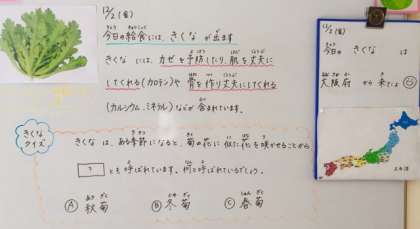 12/2(金)
今日の給食には、きくなが出ます
きくなには、カゼを予防したり、肌を丈夫に
してくれる(カロテン)や骨を作り丈夫にしてくれる
(カルシウム、ミネラル)などが含まれています。
きくな
クイズ
きくなは、ある季節になると、菊の花に似た花を咲かせることから
?とも呼ばれています。何と呼ばれているでしょう。
Ⓐ秋菊 Ⓑ冬菊 Ⓒ春菊
12/2(金)
今日のきくなは
大阪府から来たよ